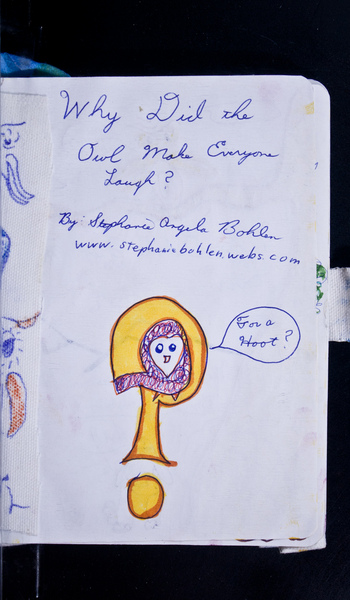 Why Did the
Owl Make Everyone
Laugh?
By: Stephanie Angela Bohlen
www.stephaniebohlen.webs.com
For a
Hoot?